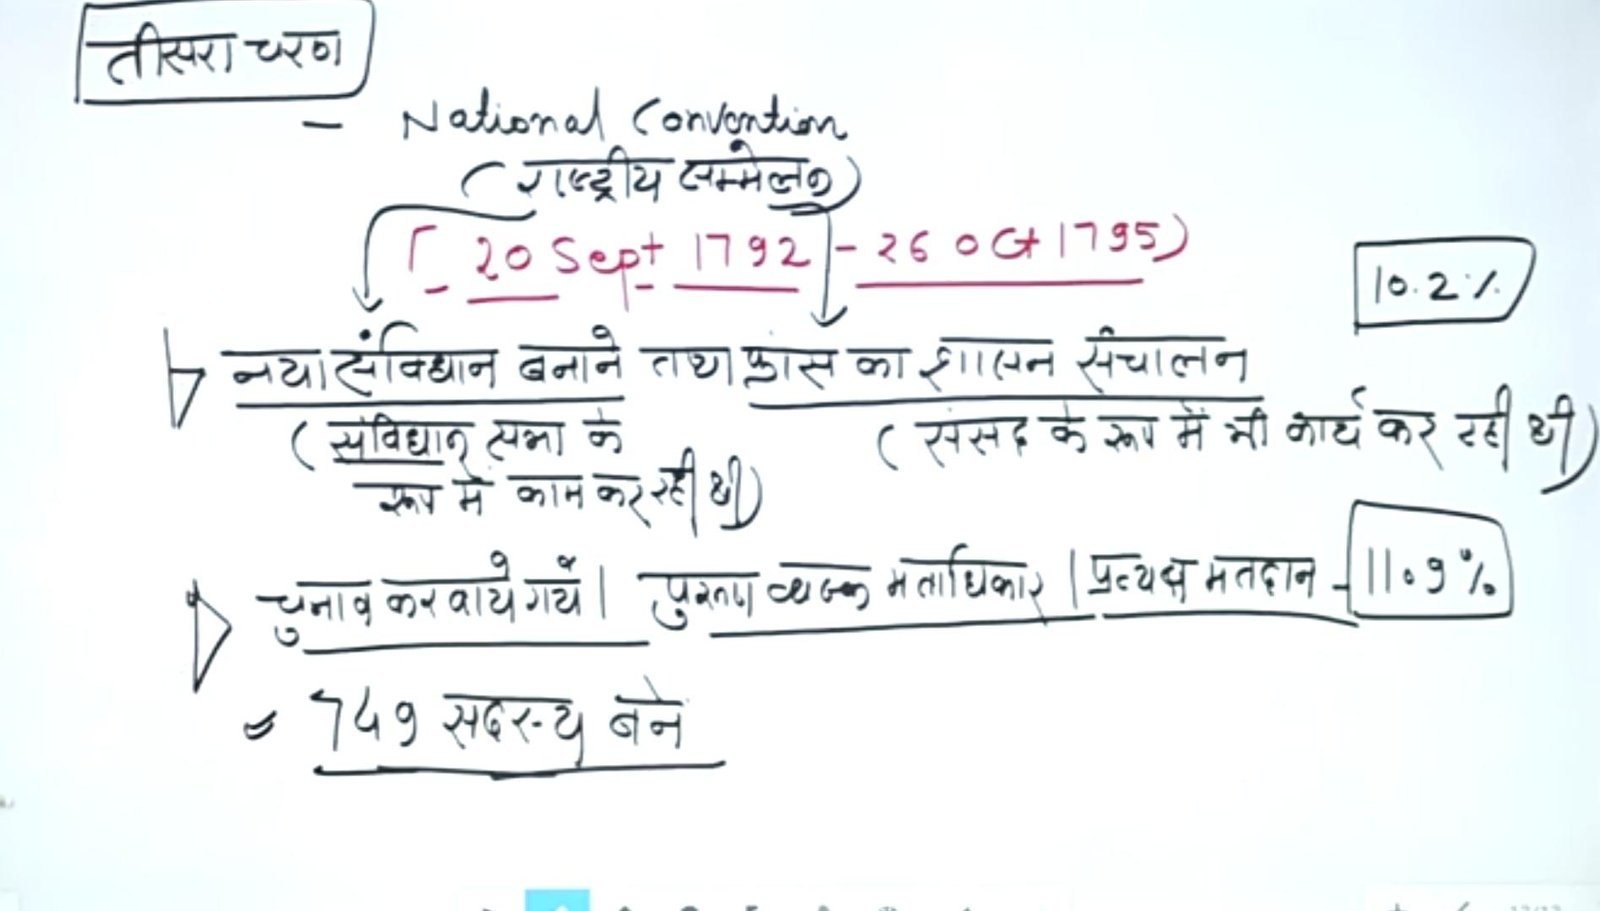 तीसरा चरण
- National Convention
(राष्ट्रीय सम्मेलन)
[20 Sept 1792 - 26 Oct 1795)
10.2%
नया संविधान बनाने तथा फ्रांस का शासन संचालन
(संविधान सभा के
रूप में काम कर रही थी)
(संसद के रूप में भी कार्य कर रही थी)
चुनाव करवाये गये। पुरूष व्यस्क मताधिकार। प्रत्यक्ष मतदान - 11.9%
749 सदस्य बने